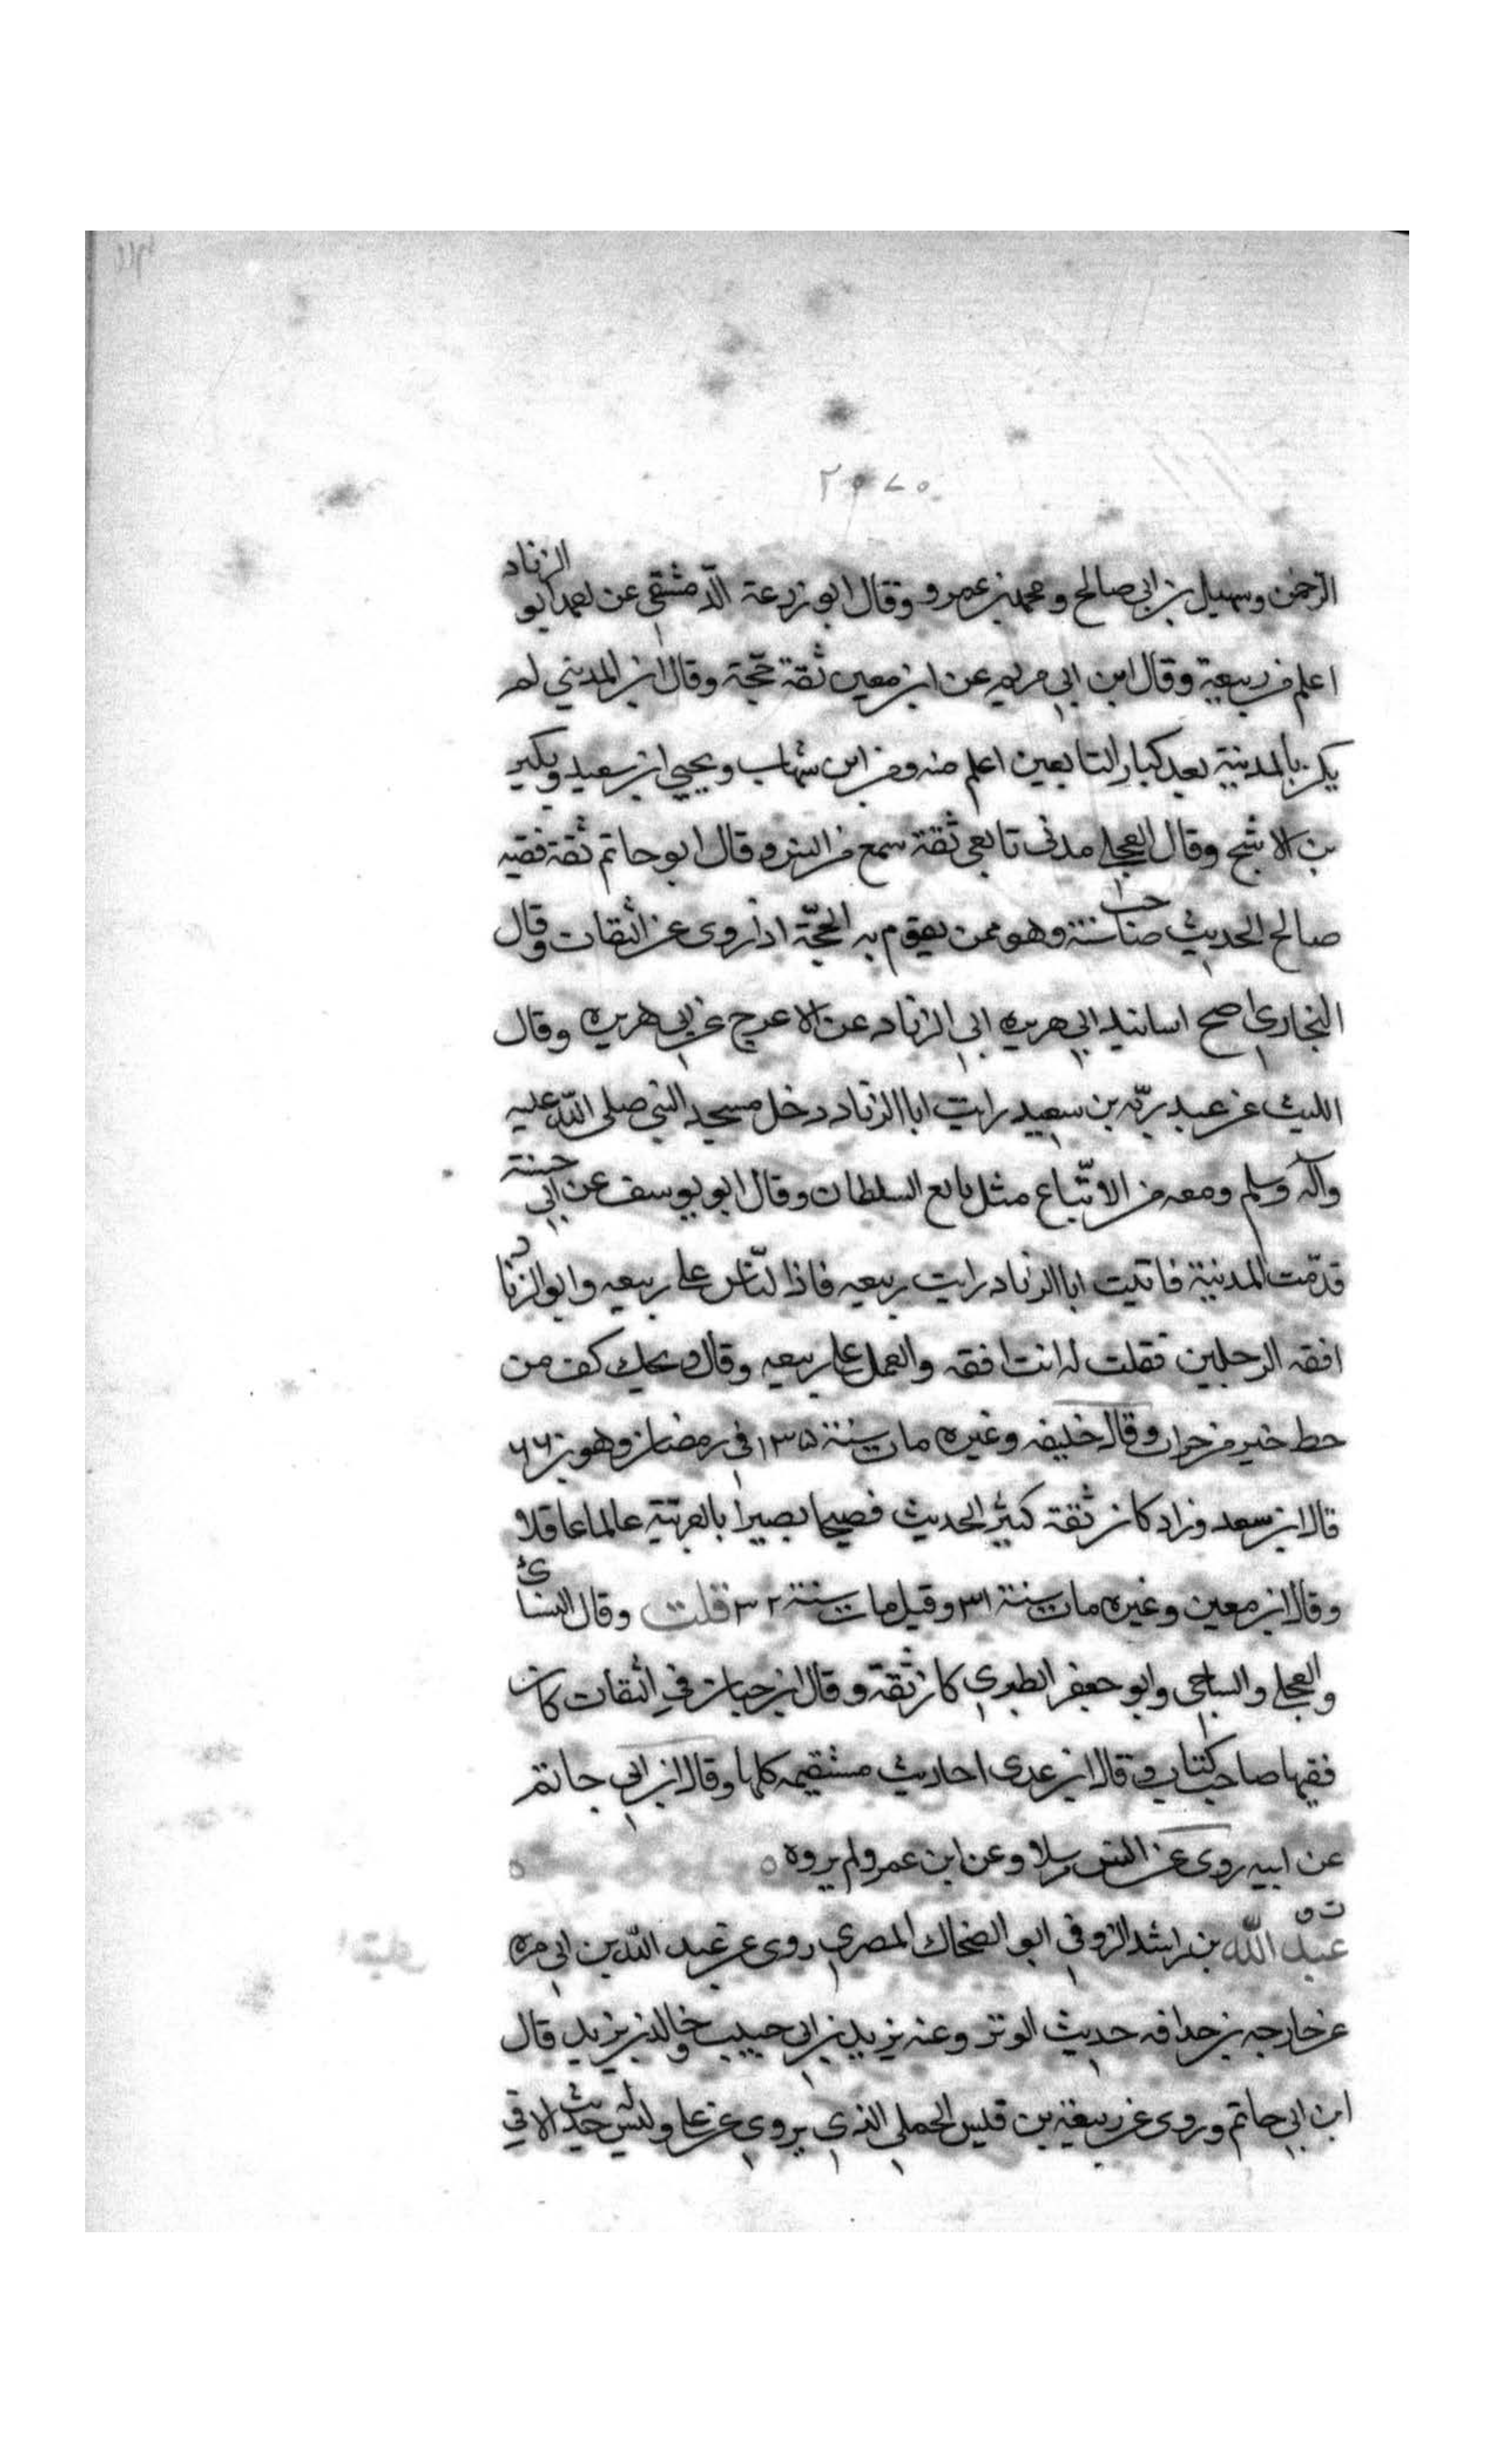 ٢٥٧٠
الرحمن وسهيل بن ابي صالح ومحمد بن عمرو وقال ابو زرعة الدّمشقي عن احمد ابو الزناد
اعلم من ربيعة وقال ابن ابي مريم عن ابن معين ثقة حجّة وقال ابن المديني لم
يكن بالمدينة بعد كبار التابعين اعلم منه ومن ابن شهاب ويحيى ابن سعيد وبكير
بن الاشج وقال العجلي مدني تابعي ثقة سمع من انس وقال ابو حاتم ثقة فقيه
صالح الحديث صاحب سنة وهو ممن يقوم به الحجّة اذا روى عن الثقات وقال
البخاري اصح اسانيد ابي هريره ابي الزناد عن الاعرج عن ابي هريره وقال
الليث عن عبد ربّه بن سعيد رايت ابا الزناد دخل مسجد النبي صلى الله عليه
وآله وسلم ومعه من الاتّباع مثل ما مع السلطان وقال ابو يوسف عن ابي حنيفة
قدمت المدينة فاتيت ابا الزناد رايت ربيعه فاذا النّاس على ربيعه وابو الزناد
افقه الرجلين فقلت له انت افقه والعمل على ربيعه وقال ويحك كف من
حظ خير من جراب وقال خليفه وغيره مات سنة ١٣٥ في رمضان وهو بن ٦٦
قال ابن سعد وزاد كان ثقة كثير الحديث فصيحا بصيرا بالعربيّة عالما عاقلا
وقال ابن معين وغيره مات سنة ٣١ وقيل مات سنة ٣٢ قلت وقال النسائي
والعجلي والساجي وابو جعفر الطبري كان ثقة وقال ابن حبان في الثقات كان
فقيها صاحب كتاب وقال ابن عدى احاديث مستقيمه كلها وقال ابن ابي حاتم
عن ابيه روى عن انس مرسلا وعن ابن عمر ولم يروه ٥ ٥
ت ق
عبد الله بن راشد الزوفي ابو الضحاك المصري روى عن عبد الله بن ابي مره
عن خارجه بن حذافه حديث الوتر وعنه يزيد بن ابي حبيب وخالد بن يزيد قال
ابن ابي حاتم وروى عن ربيعة بن قيس الجملي الذي يروي عن علي وليس له حديث الا في